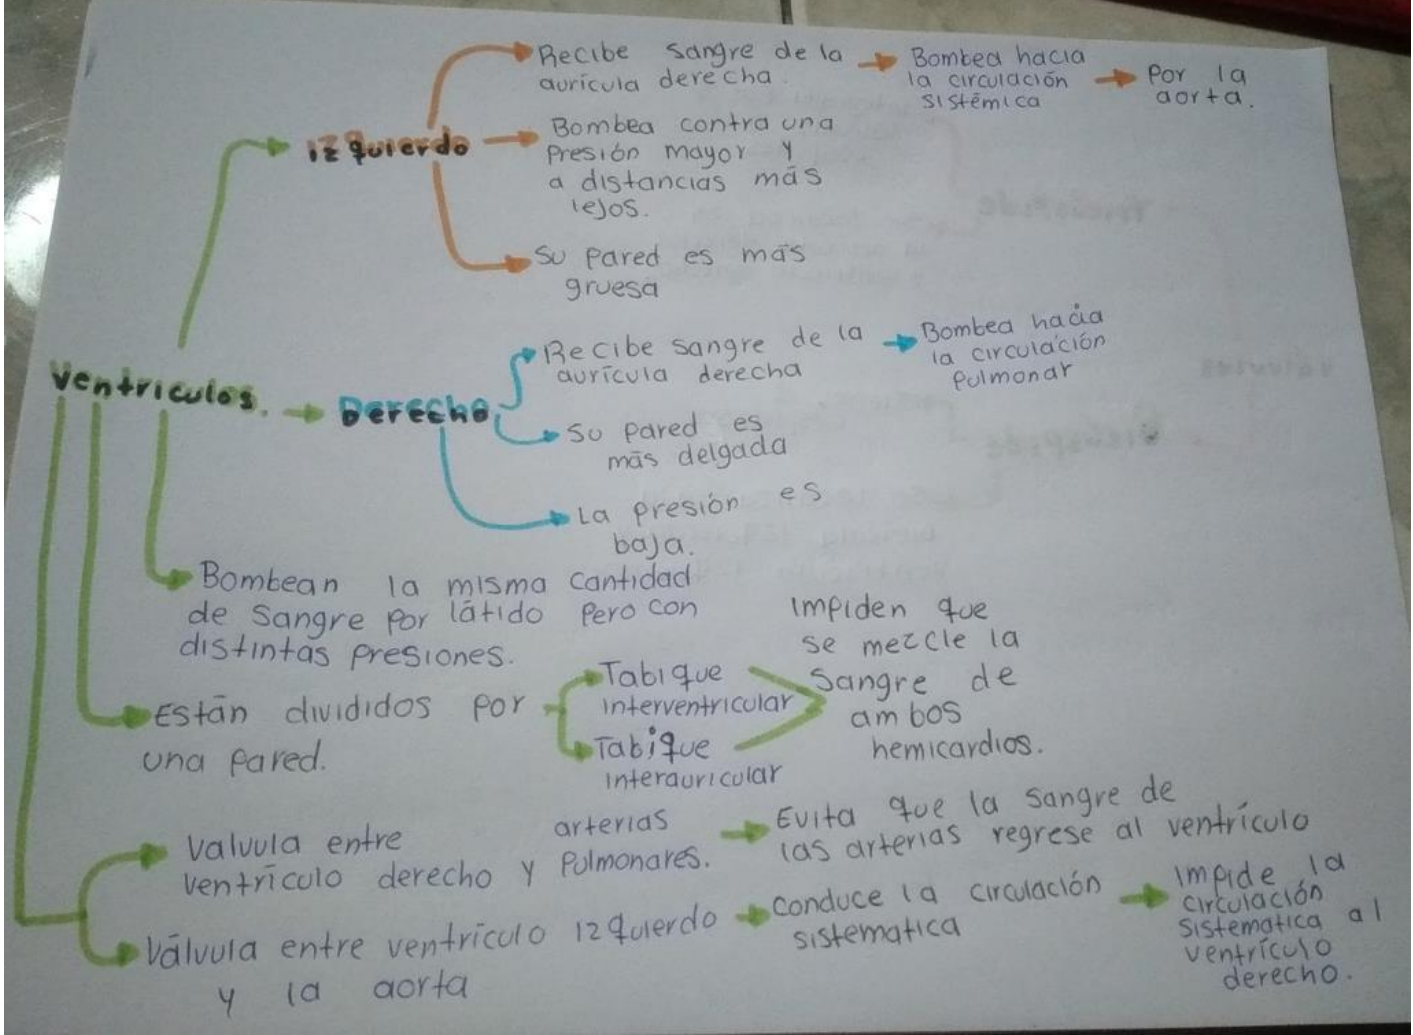 Recibe sangre de la
aurícula derecha.
Bombea hacia
la circulación
sistémica
Por la
aorta.
izquierdo
Bombea contra una
Presión mayor y
a distancias más
lejos.
Su Pared es más
gruesa
Ventriculos.
Derecho
Recibe sangre de la
aurícula derecha
Bombea hacia
la circulación
Pulmonar
Su pared es
más delgada
La presión es
baja.
Bombean la misma cantidad
de sangre por látido Pero con
distintas presiones.
Están divididos por
una Pared.
Tabique
interventricular
Tabique
interauricular
Impiden que
se mezcle la
sangre de
ambos
hemicardios.
Valvula entre arterias
ventrículo derecho y Pulmonares.
Evita que la sangre de
las arterias regrese al ventrículo
Válvula entre ventrículo izquierdo
y la aorta
Conduce la circulación
sistematica
Impide la
circulación
sistematica al
ventrículo
derecho.